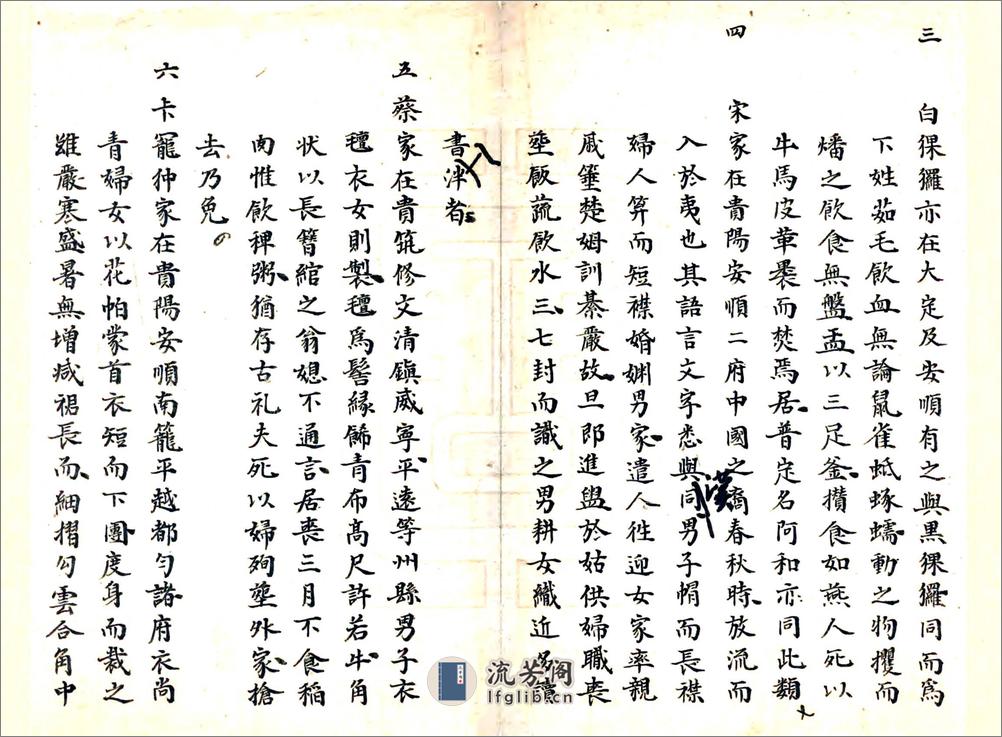 三 白猓玀亦在大定及安順有之與黑猓玀同而爲
下姓茹毛飲血無論鼠雀蚳蝝蠕動之物攫而
燔之飲食無盤盂以三足釜攢食如燕人死以
牛馬皮革裹而焚焉居普定名阿和亦同此類
四 宋家在貴陽安順二府中國之裔春秋時放流而
入於夷也其語言文字悉與漢同男子帽而長襟
婦人笄而短襟婚姻男家遣人往迎女家率親
戚箠楚姆訓綦嚴故旦即進盥於姑供婦職喪
塟飯蔬飲水三七封而識之男耕女織近多讀
書泮省
五 蔡家在貴筑修文清鎮威寧平遠等州縣男子衣
氊衣女則製氊爲髻緣飾青布高尺許若牛角
狀以長簪綰之翁媳不通言居喪三月不食稻
肉惟飲稗粥猶存古礼夫死以婦殉塟外家搶
去乃免
六 卡龍狆家在貴陽安順南籠平越都勻諸府衣尚
青婦女以花帕蒙首衣短而下團度身而裁之
雖嚴寒盛暑無增减裙長而細摺勾雲合角中
流芳閣
lfglib.cn